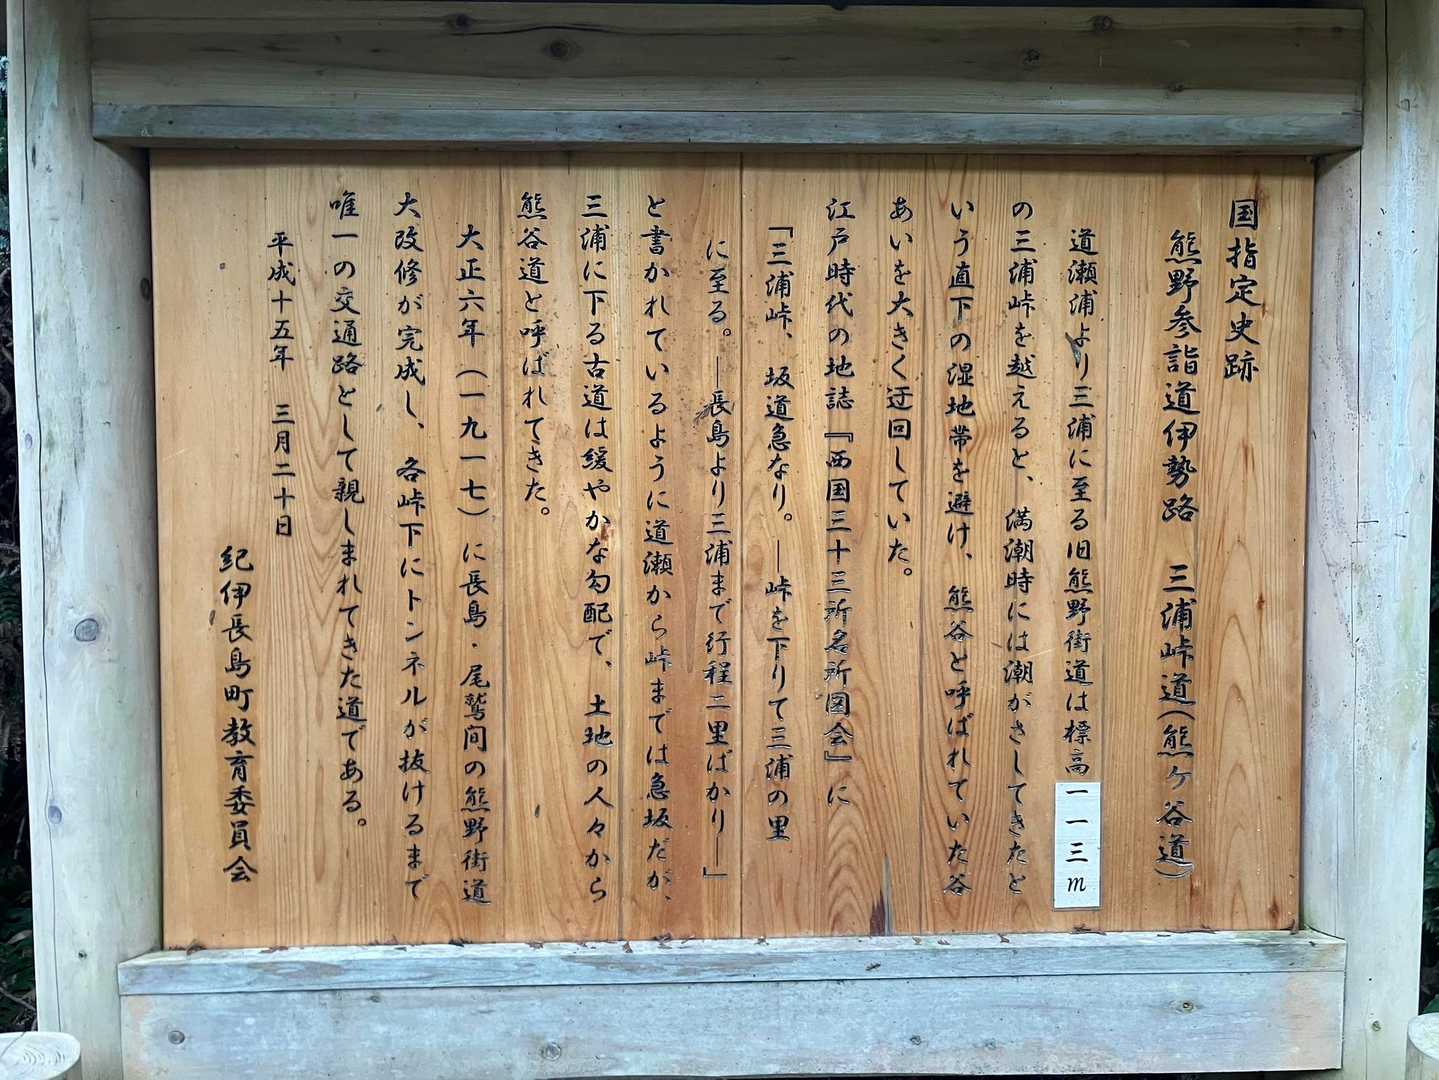 国指定史跡
熊野参詣道伊勢路　三浦峠道(熊ヶ谷道)
道瀬浦より三浦に至る旧熊野街道は標高一一三m
の三浦峠を越えると、満潮時には潮がさしてきたと
いう直下の湿地帯を避け、熊谷と呼ばれていた谷
あいを大きく迂回していた。
江戸時代の地誌『西国三十三所名所図会』に
「三浦峠、坂道急なり。―峠を下りて三浦の里
に至る。―長島より三浦まで行程二里ばかり―」
と書かれているように道瀬から峠までは急坂だが、
三浦に下る古道は緩やかな勾配で、土地の人々から
熊谷道と呼ばれてきた。
大正六年（一九一七）に長島・尾鷲間の熊野街道
大改修が完成し、各峠下にトンネルが抜けるまで
唯一の交通路として親しまれてきた道である。
平成十五年　三月二十日
紀伊長島町教育委員会